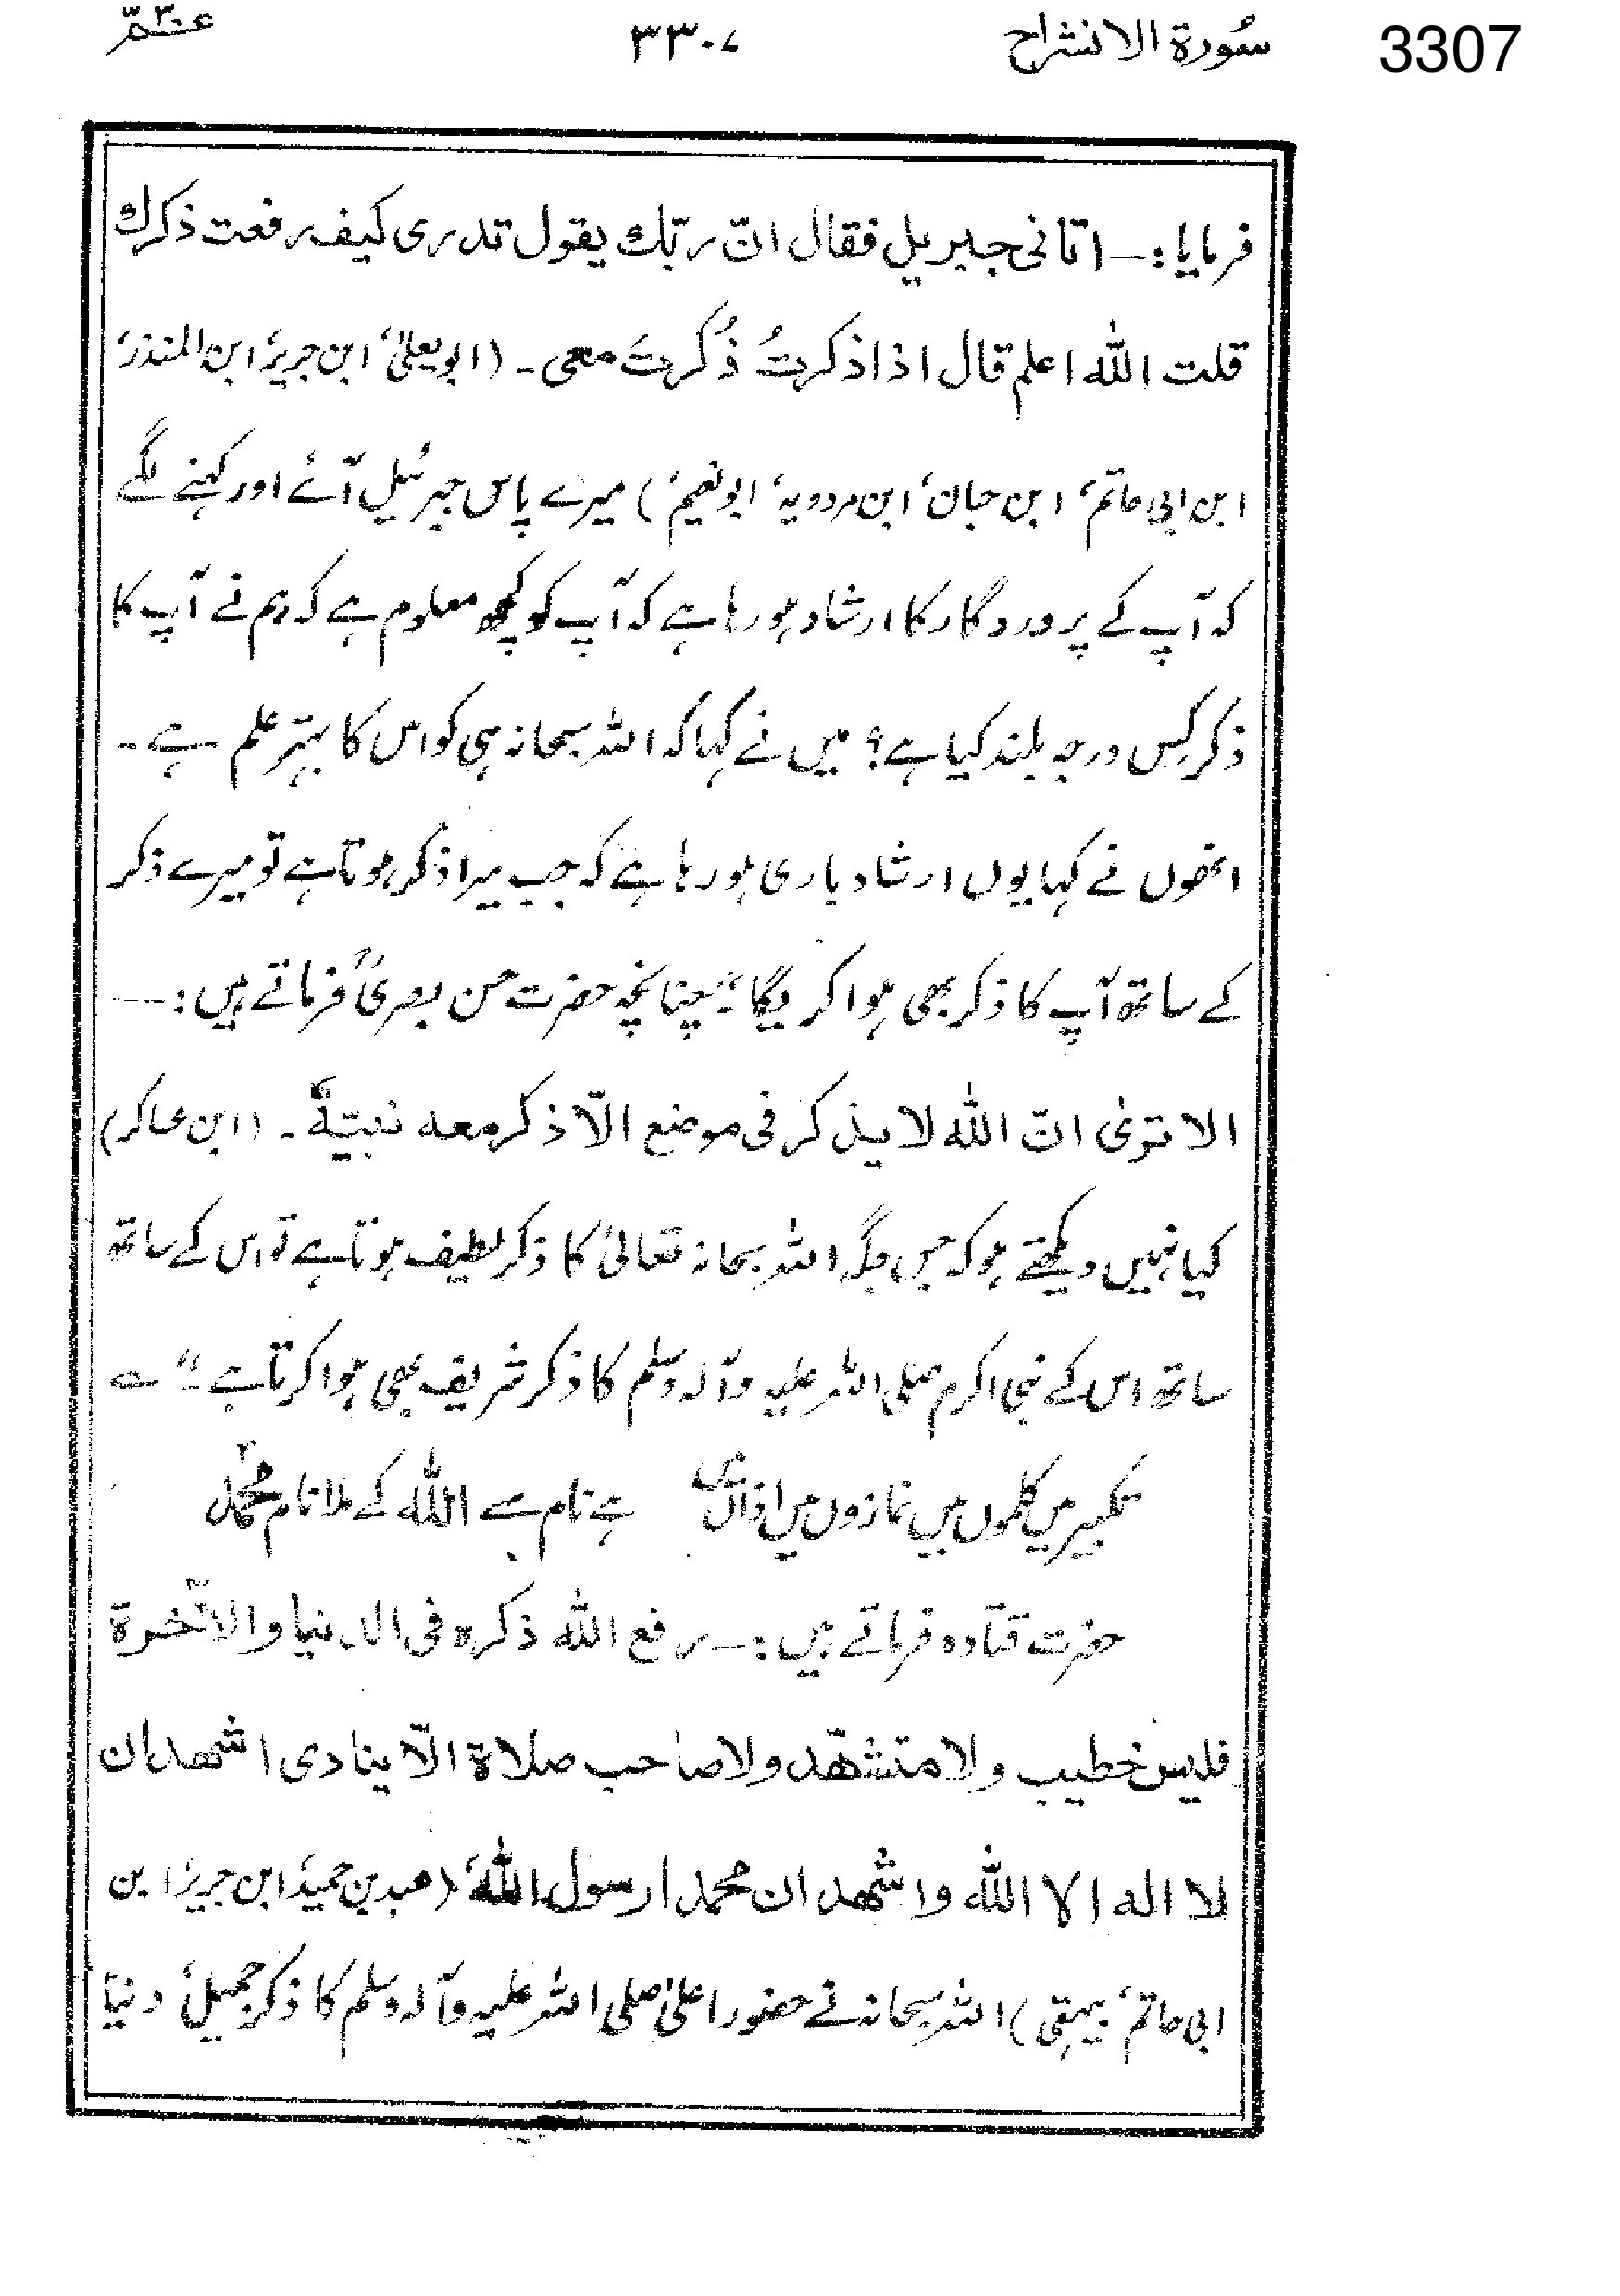 3307
سُورة الانشراح ٣٣٠٧ عمّ ٣٠
فرمایا:— اتانی جبریل فقال انّ ربّک یقول تدری کیف رفعت ذکرک
قلت اللّٰہ اعلم قال اذا ذکرتُ ذُکرتَ معی۔ (ابویعلیٰ، ابن جریر، ابن المنذر،
ابن ابی حاتم، ابن حبان، ابن مردویہ، ابو نعیم،) میرے پاس جبرئیل آئے اور کہنے لگے
کہ آپ کے پروردگار کا ارشاد ہو رہا ہے کہ آپ کو کچھ معلوم ہے کہ ہم نے آپ کا
ذکر کس درجہ بلند کیا ہے؟ میں نے کہا کہ اللہ سبحانہ ہی کو اس کا بہتر علم ہے۔
انھوں نے کہا یوں ارشاد باری ہو رہا ہے کہ جب میرا ذکر ہوتا ہے تو میرے ذکر
کے ساتھ آپ کا ذکر بھی ہوا کریگا۔" چنانچہ حضرت حسن بصریؒ فرماتے ہیں:—
الا تریٰ انّ اللّٰہ لا یذکر فی موضع الّا ذکر معہ نبیّہٗ۔ (ابن عساکر)
کیا نہیں دیکھتے ہو کہ جس جگہ اللہ سبحانہ تعالیٰ کا ذکر لطیف ہوتا ہے تو اس کے ساتھ
ساتھ اس کے نبی اکرم صلی اللہ علیہ وآلہ وسلم کا ذکر شریف بھی ہوا کرتا ہے۔" ے
تکبیر میں کلموں میں نمازوں میں اذاں میں ہے نام سے اللّٰہ کے ملا نام محمّدؐ
حضرت قتادہ فرماتے ہیں:— رفع اللّٰہ ذکرہ فی الدنیا والآخرۃ
فلیس خطیب ولا متشھّد ولا صاحب صلاۃ الّا ینادی اشھد ان
لا الہ الا اللّٰہ و اشھد ان محمدا رسول اللّٰہ، (عبد بن حمید، ابن جریر، ابن
ابی حاتم، بیہقی) اللہ سبحانہ نے حضور اعلیٰ صلی اللہ علیہ وآلہ وسلم کا ذکر جمیل، دنیا